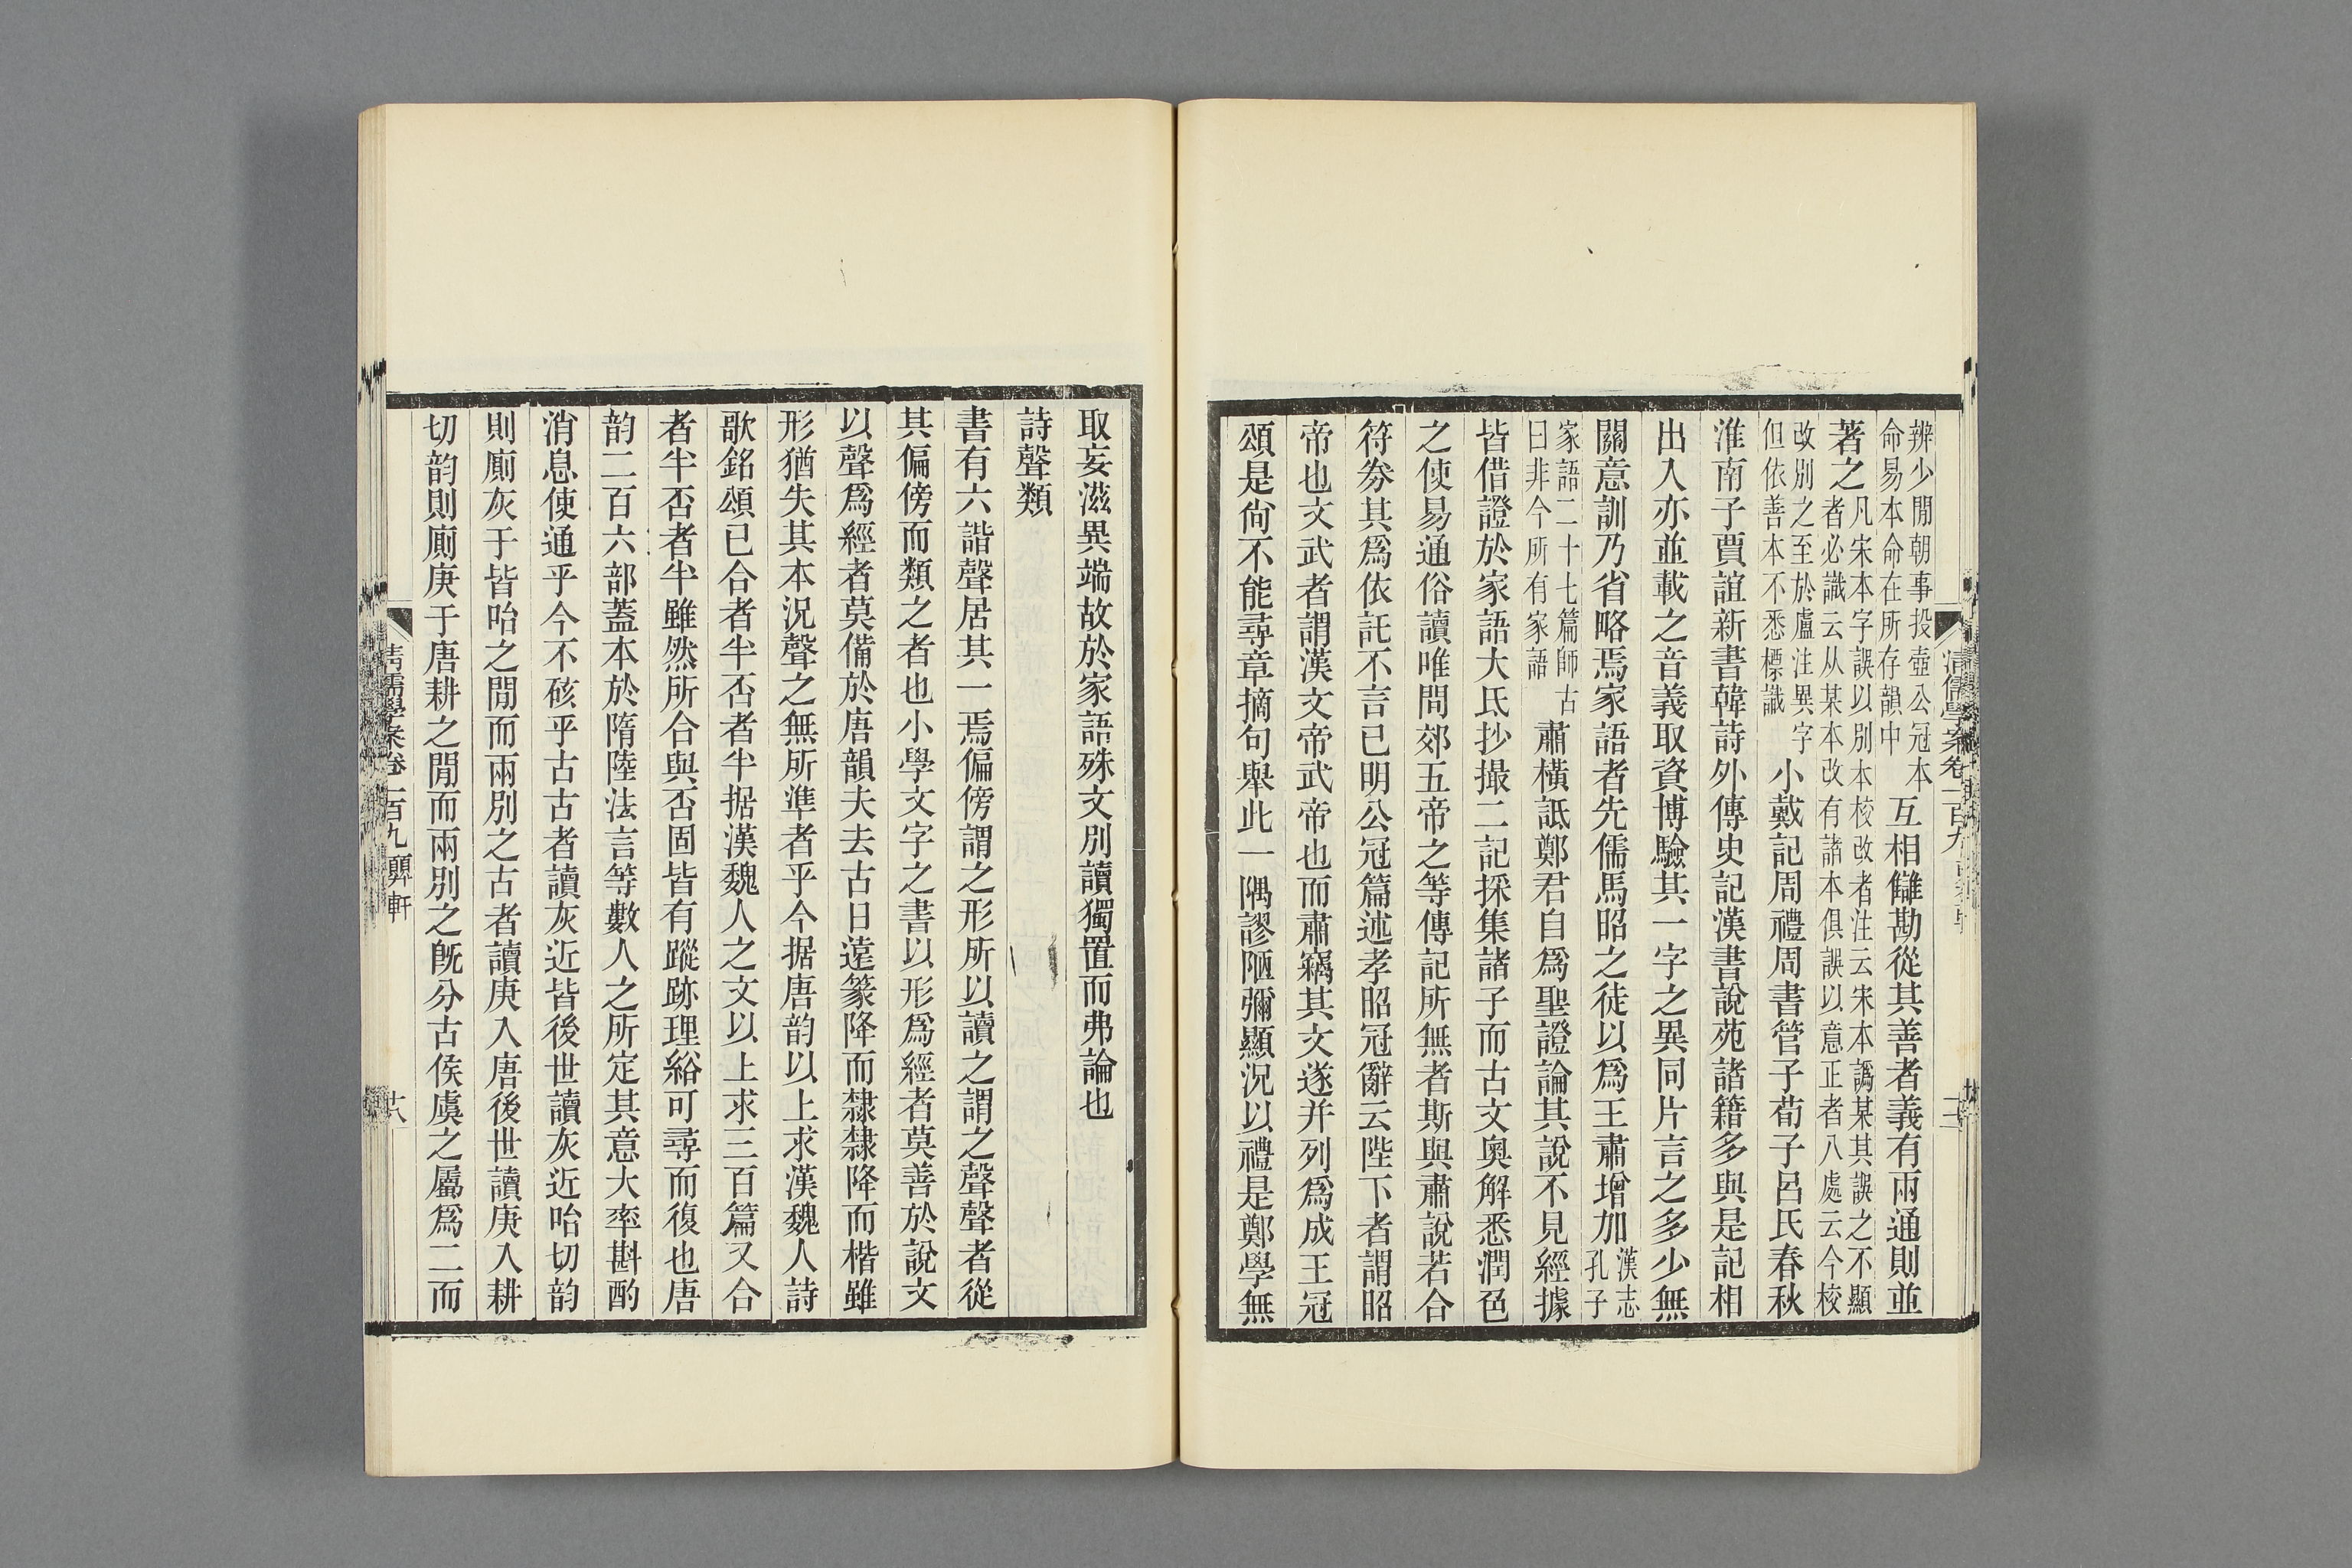 辨少閒朝事投壺公冠本
命易本命在所存韻中
互相讎勘從其善者義有兩通則並
著之
凡宋本字誤以別本校改者注云宋本譌某其誤之不顯
者必識云从某本改有諸本俱誤以意正者八處云今校
改別之至於盧注異字
但依善本不悉標識
小戴記周禮周書管子荀子呂氏春秋
淮南子賈誼新書韓詩外傳史記漢書說苑諸籍多與是記相
出入亦並載之音義取資博驗其一字之異同片言之多少無
關意訓乃省略焉家語者先儒馬昭之徒以爲王肅增加
漢志
孔子
家語二十七篇師古
曰非今所有家語
肅橫詆鄭君自爲聖證論其說不見經據
皆借證於家語大氐抄撮二記採集諸子而古文奧解悉潤色
之使易通俗讀唯問郊五帝之等傳記所無者斯與肅說若合
符券其爲依託不言已明公冠篇述孝昭冠辭云陛下者謂昭
帝也文武者謂漢文帝武帝也而肅竊其文遂并列爲成王冠
頌是尙不能尋章摘句舉此一隅謬陋彌顯況以禮是鄭學無
取妄滋異端故於家語殊文別讀獨置而弗論也
詩聲類
書有六諧聲居其一焉偏傍謂之形所以讀之謂之聲聲者從
其偏傍而類之者也小學文字之書以形爲經者莫善於說文
以聲爲經者莫備於唐韻夫去古日遠篆降而隸隸降而楷雖
形猶失其本況聲之無所準者乎今据唐韵以上求漢魏人詩
歌銘頌已合者半否者半据漢魏人之文以上求三百篇又合
者半否者半雖然所合與否固皆有蹤跡理綹可尋而復也唐
韵二百六部蓋本於隋陸法言等數人之所定其意大率斟酌
消息使通乎今不硋乎古古者讀灰近皆後世讀灰近咍切韵
則廁灰于皆咍之閒而兩別之古者讀庚入唐後世讀庚入耕
切韵則廁庚于唐耕之閒而兩別之旣分古侯虞之屬爲二而
清儒學案卷一百九 顨軒
十八